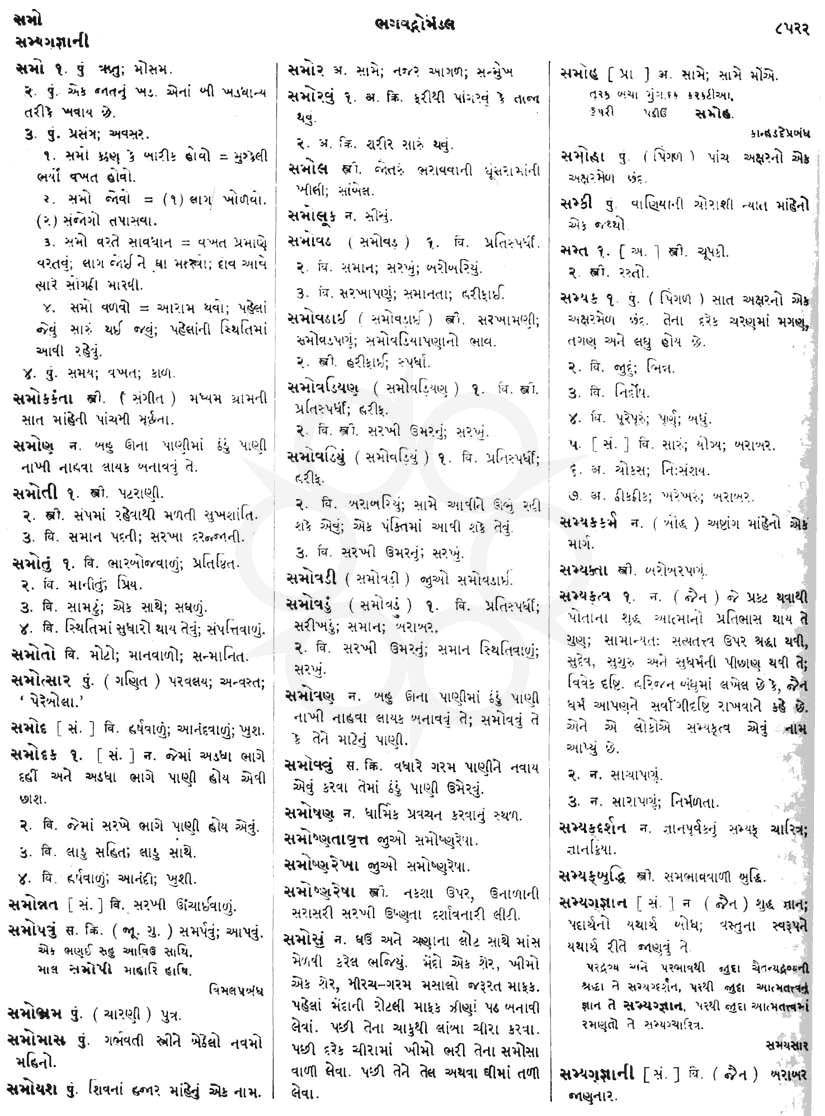 સમો
સમ્યગજ્ઞાની
ભગવદ્ગોમંડલ
૮૫૨૨
સમો ૧. પું ઋતુ; મોસમ.
૨. પું. એક જાતનું ખડ. એનાં બી ખડધાન્ય
તરીકે ખવાય છે.
૩. પું. પ્રસંગ; અવસર.
૧. સમો કઠણ કે બારીક હોવો = મુશ્કેલી
ભર્યો વખત હોવો.
૨. સમો જોવો = (૧) લાગ ખોળવો.
(૨) સંજોગો તપાસવા.
૩. સમો વરતે સાવધાન = વખત પ્રમાણે
વરતવું; લાગ જોઈ ને ઘા મારવો; દાવ આવે
ત્યારે સોગઠી મારવી.
૪. સમો વળવો = આરામ થવો; પહેલાં
જેવું સારું થઈ જવું; પહેલાંની સ્થિતિમાં
આવી રહેવું.
૪. પું. સમય; વખત; કાળ.
સમોકકંતા સ્ત્રી. ( સંગીત ) મધ્યમ ગ્રામની
સાત માંહેની પાંચમી મૂર્છના.
સમોણ ન. બહુ ઊના પાણીમાં ઠંડું પાણી
નાખી નાહવા લાયક બનાવવું તે.
સમોતી ૧. સ્ત્રી. પટરાણી.
૨. સ્ત્રી. સંપમાં રહેવાથી મળતી સુખશાંતિ.
૩. વિ. સમાન પદની; સરખા દરજ્જાની.
સમોતું ૧. વિ. ભારબોજવાળું; પ્રતિષ્ઠિત.
૨. વિ. માનીતું; પ્રિય.
૩. વિ. સામટું; એક સાથે; સઘળું.
૪. વિ. સ્થિતિમાં સુધારો થાય તેવું; સંપત્તિવાળું.
સમોતો વિ. મોટો; માનવાળો; સન્માનિત.
સમોત્સાર પું. ( ગણિત ) પરવલય; અન્વસ્ત;
‘ પેરેબોલા.’
સમોદ [ સં. ] વિ. હર્ષવાળું; આનંદવાળું; ખુશ.
સમોદક ૧. [ સં. ] ન. જેમાં અડધા ભાગે
દહીં અને અડધા ભાગે પાણી હોય એવી
છાશ.
૨. વિ. જેમાં સરખે ભાગે પાણી હોય એવું.
૩. વિ. લાડુ સહિત; લાડુ સાથે.
૪. વિ. હર્ષવાળું; આનંદી; ખુશી.
સમોન્નત [ સં. ] વિ. સરખી ઊંચાઈવાળું.
સમોપવું સ. ક્રિ. ( જૂ. ગુ. ) સમર્પવું; આપવું.
એક ભણઈ રુહુ આવિઉ સાથિ,
માલ સમોપી માહારિ હાથિ.
વિમલપ્રબંધ
સમોભ્રમ પું. ( ચારણી ) પુત્ર.
સમોમાસ પું. ગર્ભવતી સ્ત્રીને બેઠેલો નવમો
મહિનો.
સમોયશ પું. શિવનાં હજાર માંહેનું એક નામ.
સમોર અ. સામે; નજર આગળ; સન્મુખ
સમોરવું ૧. અ. ક્રિ. ફરીથી પાંગરવું કે તાજા
થવું.
૨. અ. ક્રિ. શરીર સારું થવું.
સમોલ સ્ત્રી. જોતરું ભરાવવાની ધૂંસરામાંની
ખીલી; સાંબેલ.
સમોલૂક ન. સીસું.
સમોવડ ( સમોવડ઼ ) ૧. વિ. પ્રતિસ્પર્ધી.
૨. વિ. સમાન; સરખું; બરોબરિયું.
૩. વિ. સરખાપણું; સમાનતા; હરીફાઈ.
સમોવડાઈ ( સમોવડ઼ાઈ ) સ્ત્રી. સરખામણી;
સમોવડપણું; સમોવડિયાપણાનો ભાવ.
૨. સ્ત્રી. હરીફાઈ; સ્પર્ધા.
સમોવડિયણ ( સમોવડ઼િયણ ) ૧. વિ. સ્ત્રી.
પ્રતિસ્પર્ધી; હરીફ.
૨. વિ. સ્ત્રી. સરખી ઉમરનું; સરખું.
સમોવડિયું ( સમોવડ઼િયું ) ૧. વિ. પ્રતિસ્પર્ધી;
હરીફ.
૨. વિ. બરાબરિયું; સામે આવીને ઊભું રહી
શકે એવું; એક પંક્તિમાં આવી શકે તેવું.
૩. વિ. સરખી ઉમરનું; સરખું.
સમોવડી ( સમોવડ઼ી ) જુઓ સમોવડાઈ.
સમોવડું ( સમોવડ઼ું ) ૧. વિ. પ્રતિસ્પર્ધી;
સરીખડું; સમાન; બરાબર.
૨. વિ. સરખી ઉમરનું; સમાન સ્થિતિવાળું;
સરખું.
સમોવણ ન. બહુ ઊના પાણીમાં ઠંડું પાણી
નાખી નાહવા લાયક બનાવવું તે; સમોવવું તે
કે તેને માટેનું પાણી.
સમોવવું સ. ક્રિ. વધારે ગરમ પાણીને નવાય
એવું કરવા તેમાં ઠંડું પાણી ઉમેરવું.
સમોષણ ન. ધાર્મિક પ્રવચન કરવાનું સ્થળ.
સમોષ્ણતાવૃત્ત જુઓ સમોષ્ણરેષા.
સમોષ્ણરેખા જુઓ સમોષ્ણરેષા.
સમોષ્ણરેષા સ્ત્રી. નકશા ઉપર, ઉનાળાની
સરાસરી સરખી ઉષ્ણતા દર્શાવનારી લીટી.
સમોસું ન. ઘઉં અને ચણાના લોટ સાથે માંસ
મેળવી કરેલ ભજિયું. મેંદો એક શેર, ખીમો
એક શેર, મીરચ-ગરમ મસાલો જરૂરત માફક.
પહેલાં મેંદાની રોટલી માફક ઝીણાં પડ બનાવી
લેવાં. પછી તેના ચાકુથી લાંબા ચીરા કરવા.
પછી દરેક ચીરામાં ખીમો ભરી તેના સમોસા
વાળી લેવા. પછી તેને તેલ અથવા ઘીમાં તળી
લેવા.
સમોહ [ પ્રા ] અ. સામે; સામે મોંએ.
તરક બચા મુંગદક કરકટીઆ,
કપરી પડીઉ સમોહ.
કાન્હડદેપ્રબંધ
સમોહા પું. ( પિંગળ ) પાંચ અક્ષરનો એક
અક્ષરમેળ છંદ.
સમ્કી પું. વાણિયાની ચોરાશી ન્યાત માંહેની
એક જથ્થો.
સમ્ત ૧. [ અ. ] સ્ત્રી. ચૂપકી.
૨. સ્ત્રી. રસ્તો.
સમ્યક ૧. પું. ( પિંગળ ) સાત અક્ષરનો એક
અક્ષરમેળ છંદ. તેના દરેક ચરણમાં મગણ,
તગણ અને લઘુ હોય છે.
૨. વિ. જુદું; ભિન્ન.
૩. વિ. નિર્દોષ.
૪. વિ. પૂરેપૂરું; પૂર્ણ; બધું.
૫. [ સં. ] વિ. સારું; યોગ્ય; બરાબર.
૬. અ. ચોકસ; નિઃસંશય.
૭. અ. ઠીકઠીક; ખરેખરું; બરાબર.
સમ્યકકર્મ ન. ( બૌદ્ધ ) અષ્ટાંગ માંહેનો એક
માર્ગ.
સમ્યક્તા સ્ત્રી. બરોબરપણું.
સમ્યક્ત્વ ૧. ન. ( જૈન ) જે પ્રકટ થવાથી
પોતાના શુદ્ધ આત્માનો પ્રતિભાસ થાય તે
ગુણ; સામાન્યતઃ સત્યતત્ત્વ ઉપર શ્રદ્ધા થવી,
સુદેવ, સુગુરુ અને સુધર્મની પીછાણ થવી તે;
વિવેક દૃષ્ટિ. હરિજન બંધુમાં લખેલ છે કે, જૈન
ધર્મ આપણને સર્વાંગીદૃષ્ટિ રાખવાને કહે છે.
એને એ લોકોએ સમ્યક્ત્વ એવું નામ
આપ્યું છે.
૨. ન. સાચાપણું.
૩. ન. સારાપણું; નિર્મળતા.
સમ્યક્દર્શન ન. જ્ઞાનપૂર્વકનું સમ્યક્ ચારિત્ર;
જ્ઞાનક્રિયા.
સમ્યક્બુદ્ધિ સ્ત્રી. સમભાવવાળી બુદ્ધિ.
સમ્યગ્જ્ઞાન [ સં. ] ન ( જૈન ) શુદ્ધ જ્ઞાન;
પદાર્થનો યથાર્થ બોધ; વસ્તુના સ્વરૂપને
યથાર્થ રીતે જાણવું તે
પરદ્રવ્ય અને પરભાવથી જુદા ચૈતન્યદ્રવ્યની
શ્રદ્ધા તે સમ્યગદર્શન, પરથી જુદા આત્મતત્ત્વનું
જ્ઞાન તે સમ્યગજ્ઞાન, પરથી જુદા આત્મતત્ત્વમાં
રમણતો તે સમ્યગ્ચારિત્ર.
સમયસાર
સમ્યગ્જ્ઞાની [ સં. ] વિ. ( જૈન ) બરાબર
જાણનાર.